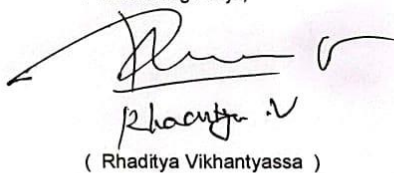 Rhaditya .V
( Rhaditya Vikhantyassa )